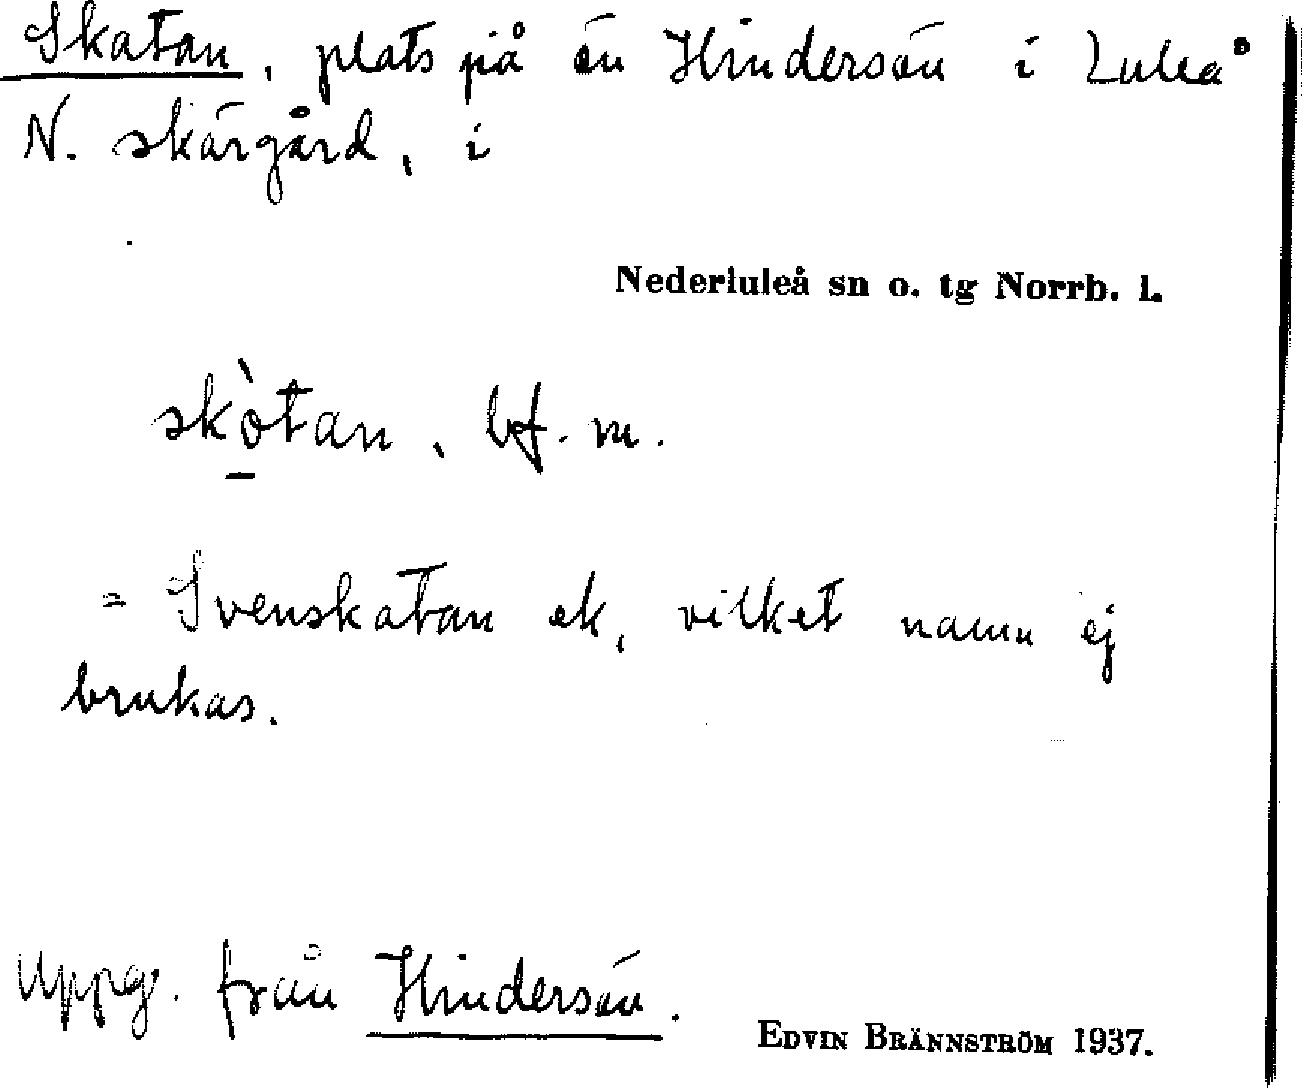 Skatan, plats på ön Hindersön i Luleå
N. skärgård, i
Nederluleå sn o. tg Norrb. l.
skò̠tan, bf. m.
= Svenskatan ek, vilket namn ej
brukas.
Uppg. från Hindersön.
EDVIN BRÄNNSTRÖM 1937.